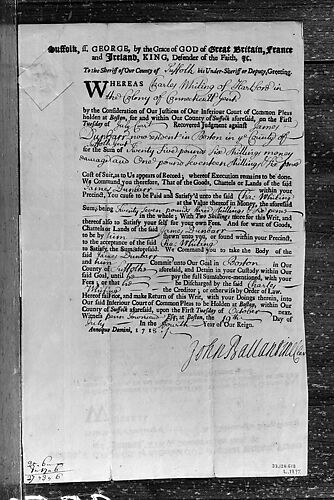 Suffolk, ſſ. GEORGE, by the Grace of GOD of Great Britain, France
and Ireland, KING, Defender of the Faith, &c.
To the Sheriff of Our County of Suffolk his Under-Sheriff or Deputy, Greeting.
WHEREAS Charles Whiting of Hartford in
the Colony of Connecticutt Gent
by the Consideration of Our Justices of Our Inferiour Court of Common Pleas
holden at Boston, for and within Our County of Suffolk aforesaid, on the First
Tuesday of July Curt Recovered Judgment against James
Dunbarr now resident in Boston in ye County of
Suffolk Gent
for the Sum of Twenty five pounds six shillings money
damage and One pound seventeen shillings & six pence
Cost of Suit, as to Us appears of Record; whereof Execution remains to be done.
We Command you therefore, That of the Goods, Chattels or Lands of the said
James Dunbarr within your
Precinct, You cause to be Paid and Satisfy'd unto the said Cha Whiting
at the Value thereof in Money, the aforesaid
Sums; being Twenty Seven pounds three shillings & six pence
in the whole; with Two Shillings more for this Writ, and
thereof also to Satisfy your self for your own Fees. And for want of Goods,
Chattels or Lands of the said James Dunbarr
to be by him shewn unto you, or found within your Precinct,
to the acceptance of the said Cha Whiting
to Satisfy the Sums aforesaid. We Command you to Take the Body of the
said James Dunbarr
and him Commit unto Our Goal in Boston in Our
County of Suffolk aforesaid, and Detain in your Custody within Our
said Goal, until he pay the full Sums above-mentioned, with your
Fees; or that he be Discharged by the said Charles
Whiting the Creditor; or otherwise by Order of Law.
Hereof fail not, and make Return of this Writ, with your Doings therein, into
Our said Inferiour Court of Common Pleas to be Holden at Boston, within Our
County of Suffolk aforesaid, upon the First Tuesday of October next.
Witness Penn Townsend Esq; at Boston, the 19th Day of
July In the fourth Year of Our Reign.
Annoque Domini, 1718
John Ballantine Cler
25-6-
1-17-6
27-3-6